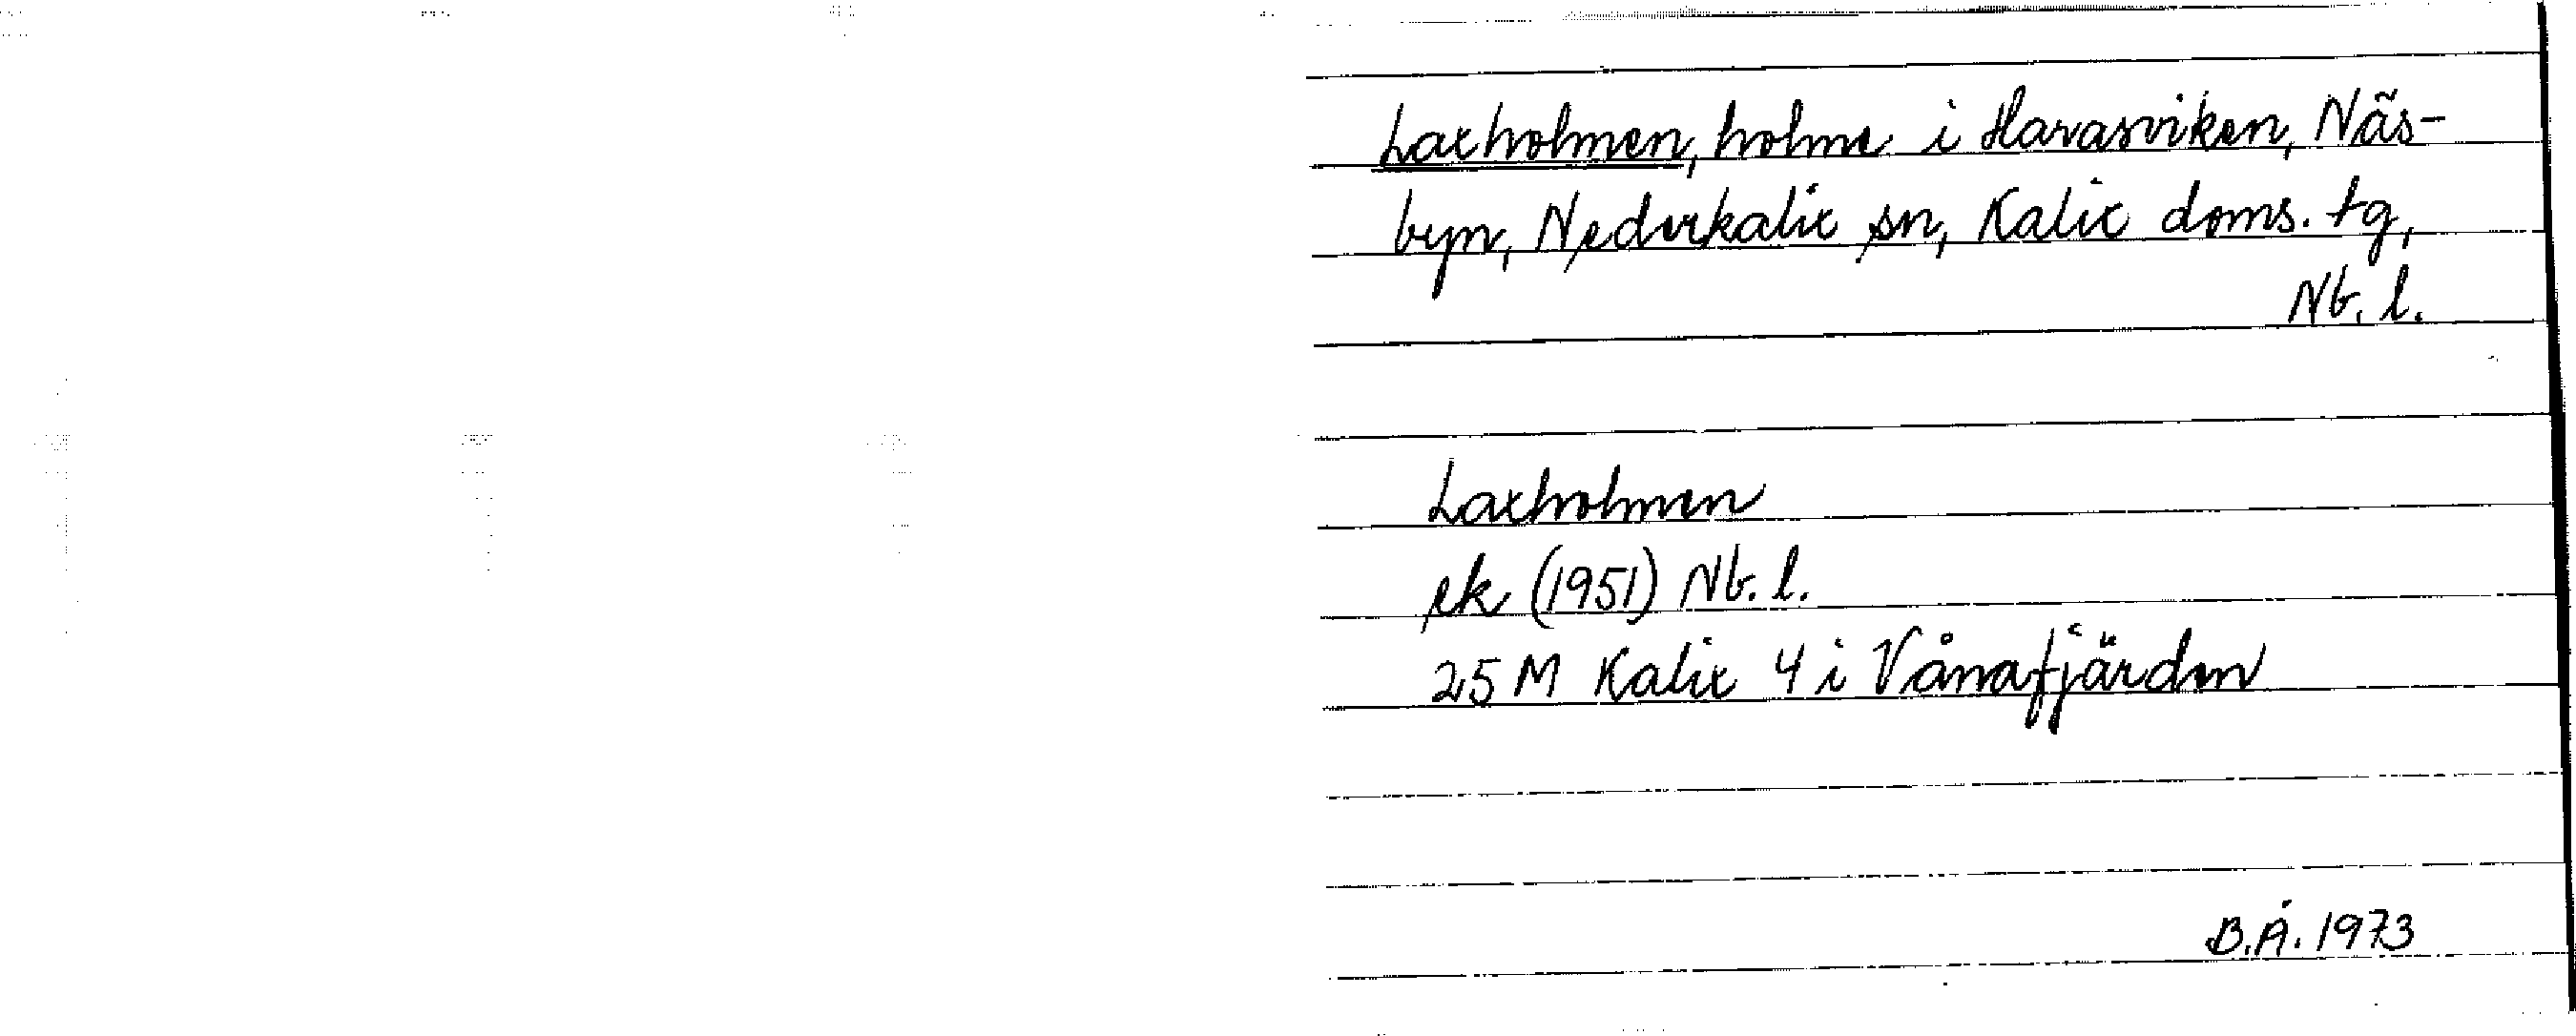 Laxholmen, holme i Harasviken, Näs-
byn, Nederkalix sn, Kalix doms. tg,
Nb. l.
Laxholmen
ek (1951) Nb. l.
25 M Kalix 4 i Vånafjärden
B.Å. 1973